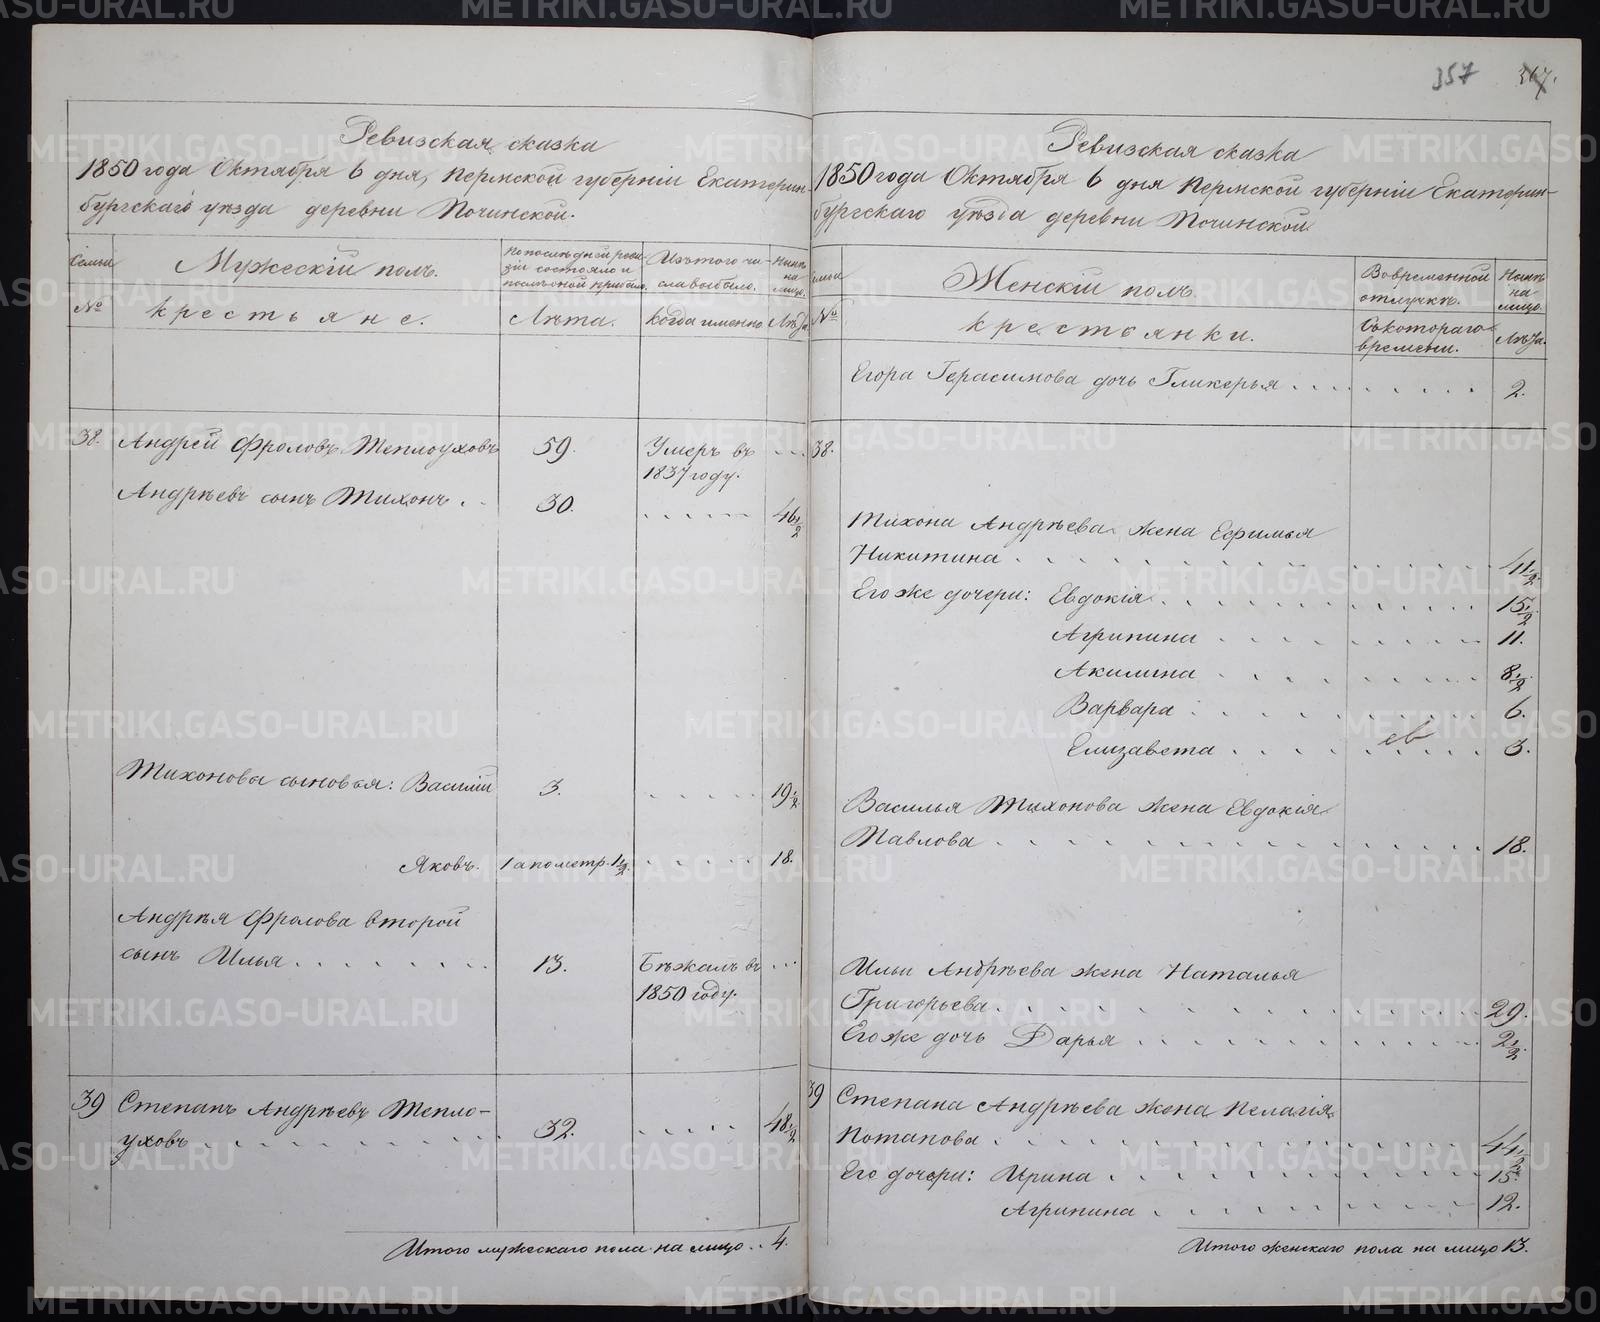 357 367.
Ревизская сказка
1850 года Октября 6 дня, Пермской губерніи Екатерин-
бургскаго уѣзда деревни Починской.
Семьи
№
Мужескій полъ.
крестьяне.
По послѣдней реви-
зіи состояло и
послѣ оной прибыло.
Лѣта.
Изъ того чи-
сла выбыло.
Когда именно
Нынѣ
на
лицо.
Лѣта.
38. Андрей Фроловъ Теплоуховъ 59. Умеръ въ . . .
1837 году.
Андрѣевъ сынъ Тихонъ . . 30. . . . . . . 46 1/2
Тихоновы сыновья: Василій 3. . . . . . 19 1/2
Яковъ. 1 а по метр. 1 1/2. . . . . . 18.
Андрѣя Фролова второй
сынъ Илья . . . . . . . 13. Бѣжалъ въ . . .
1850 году.
39 Степанъ Андрѣевъ Тепло-
уховъ . . . . . . . . . . . 32. . . . . . 48 1/2
Итого мужескаго пола на лицо . . 4.
Ревизская сказка
1850 года Октября 6 дня Пермской губерніи Екатерин-
бургскаго уѣзда деревни Починской
Семьи
№
Женскій полъ
крестьянки.
Во временной
отлучкѣ.
Съ котораго
времени.
Нынѣ
на
лицо.
Лѣта.
Егора Герасимова дочь Гликерья . . . . . . . . 2.
38.
Тихона Андрѣева жена Ефимья
Никитина . . . . . . . . . . . . . 41 1/2.
Его же дочери: Евдокія . . . . . . . . . . 15 1/2
Агрипина . . . . . . . . 11.
Акилина . . . . . . . . 8 1/2.
Варвара . . . . . . . . 6.
Елизавета . . . . . . . . 3.
Василья Тихонова жена Евдокія
Павлова . . . . . . . . . . . . . 18.
Ильи Андрѣева жена Наталья
Григорьева . . . . . . . . . . . . . 29.
Его же дочь Дарья . . . . . . . . . . 2 1/2.
39 Степана Андрѣева жена Пелагія
Потапова . . . . . . . . . . . . . 44 1/2
Его дочери: Ирина . . . . . . . . . . 15.
Агрипина . . . . . . . . . . 12.
Итого женскаго пола на лицо 13.
METRIKI.GASO-URAL.RU